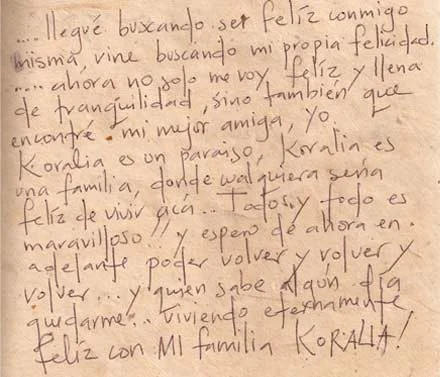 .... llegué buscando ser felíz conmigo
misma, vine buscando mi propia felicidad.
..... ahora no solo me voy felíz y llena
de tranquilidad, sino también que
encontré mi mejor amiga, yo.
Koralia es un paraiso, Koralia es
una familia, donde cualquiera sería
felíz de vivir acá... Todos y todo es
maravilloso!! y espero de ahora en
adelante poder volver y volver y
volver... y quien sabe algún día
quedarme... viviendo eternamente
felíz con MI familia KORALIA!